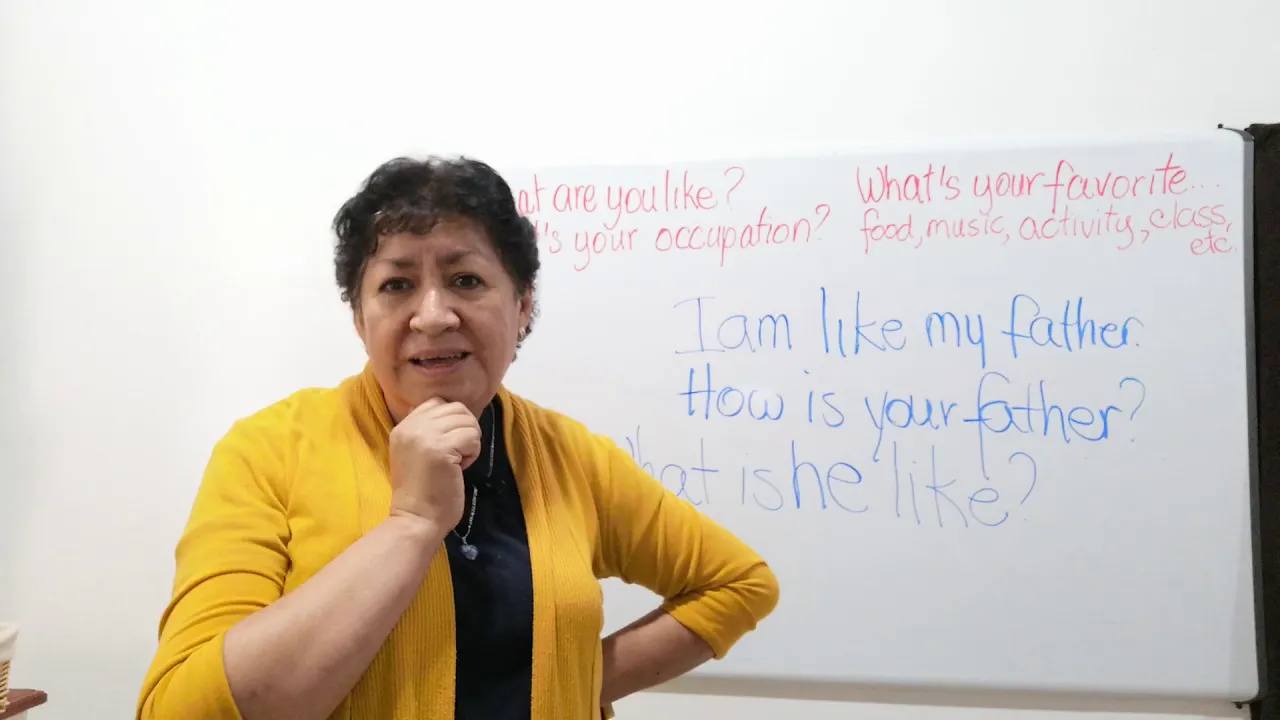 are you like?
your occupation?
What's your favorite....
food, music, activity, class,
etc.
I am like my father.
How is your father?
is he like?